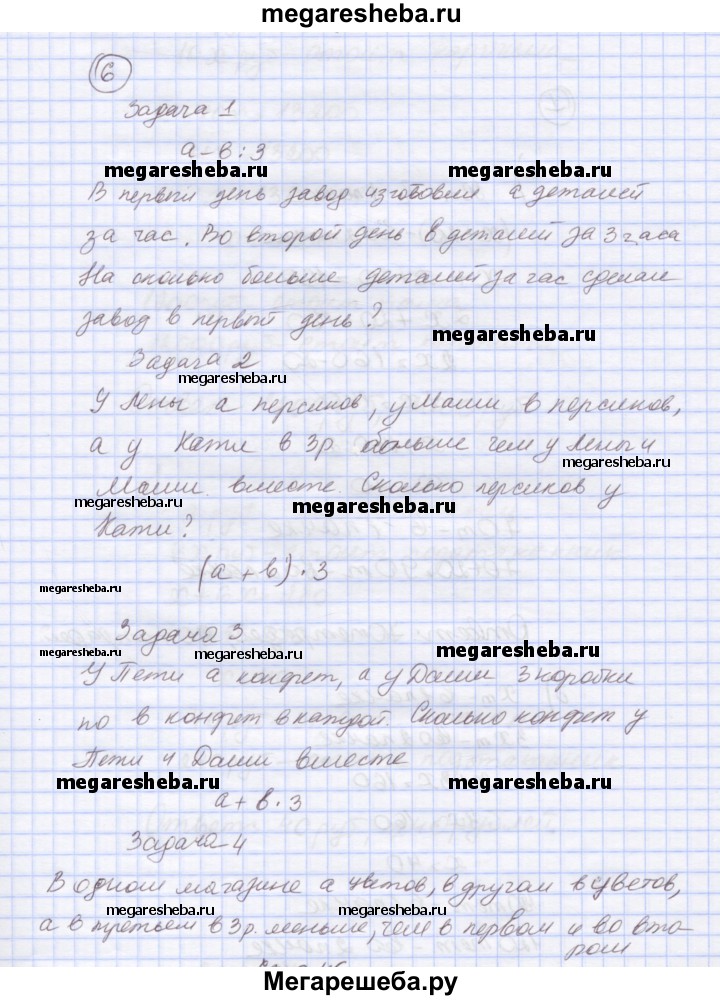 megaresheba.ru
6
Задача 1
а-в:3
megaresheba.ru megaresheba.ru
В первый день завод изготовил а деталей
за час. Во второй день в деталей за 3 часа
На сколько больше деталей за час сделал
завод в первый день?
megaresheba.ru
Задача 2
megaresheba.ru
У Лены а персиков, у Маши в персиков,
а у Кати в 3 р. больше чем у Лены и
megaresheba.ru
Маши вместе. Сколько персиков у
megaresheba.ru
Кати?
(а+в)·3
megaresheba.ru
Задача 3
megaresheba.ru megaresheba.ru megaresheba.ru
У Пети а конфет, а у Даши 3 коробки
по в конфет в каждой. Сколько конфет у
Пети и Даши вместе
megaresheba.ru megaresheba.ru
а+в·3
Задача 4
В одном магазине а цветов, в другом в цветов,
megaresheba.ru megaresheba.ru
а в третьем в 3 р. меньше, чем в первом и во вто-
ром
Мегарешеба.ру